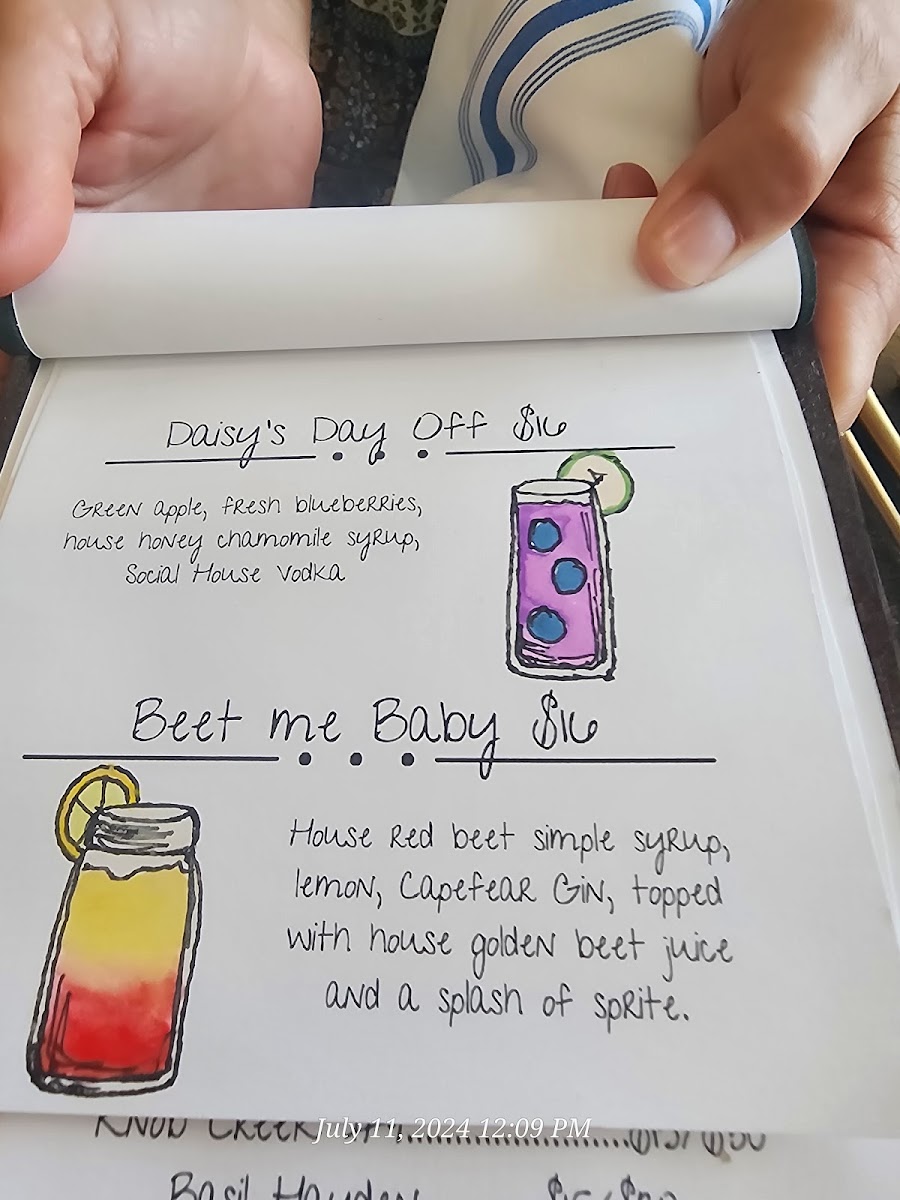 Daisy's Day Off $16
Green apple, fresh blueberries,
house honey chamomile syrup,
Social House Vodka
Beet me Baby $16
House red beet simple syrup,
lemon, Capefear Gin, topped
with house golden beet juice
and a splash of sprite.
Knob Creek
July 11, 2024 12:09 PM
Basil Hayden